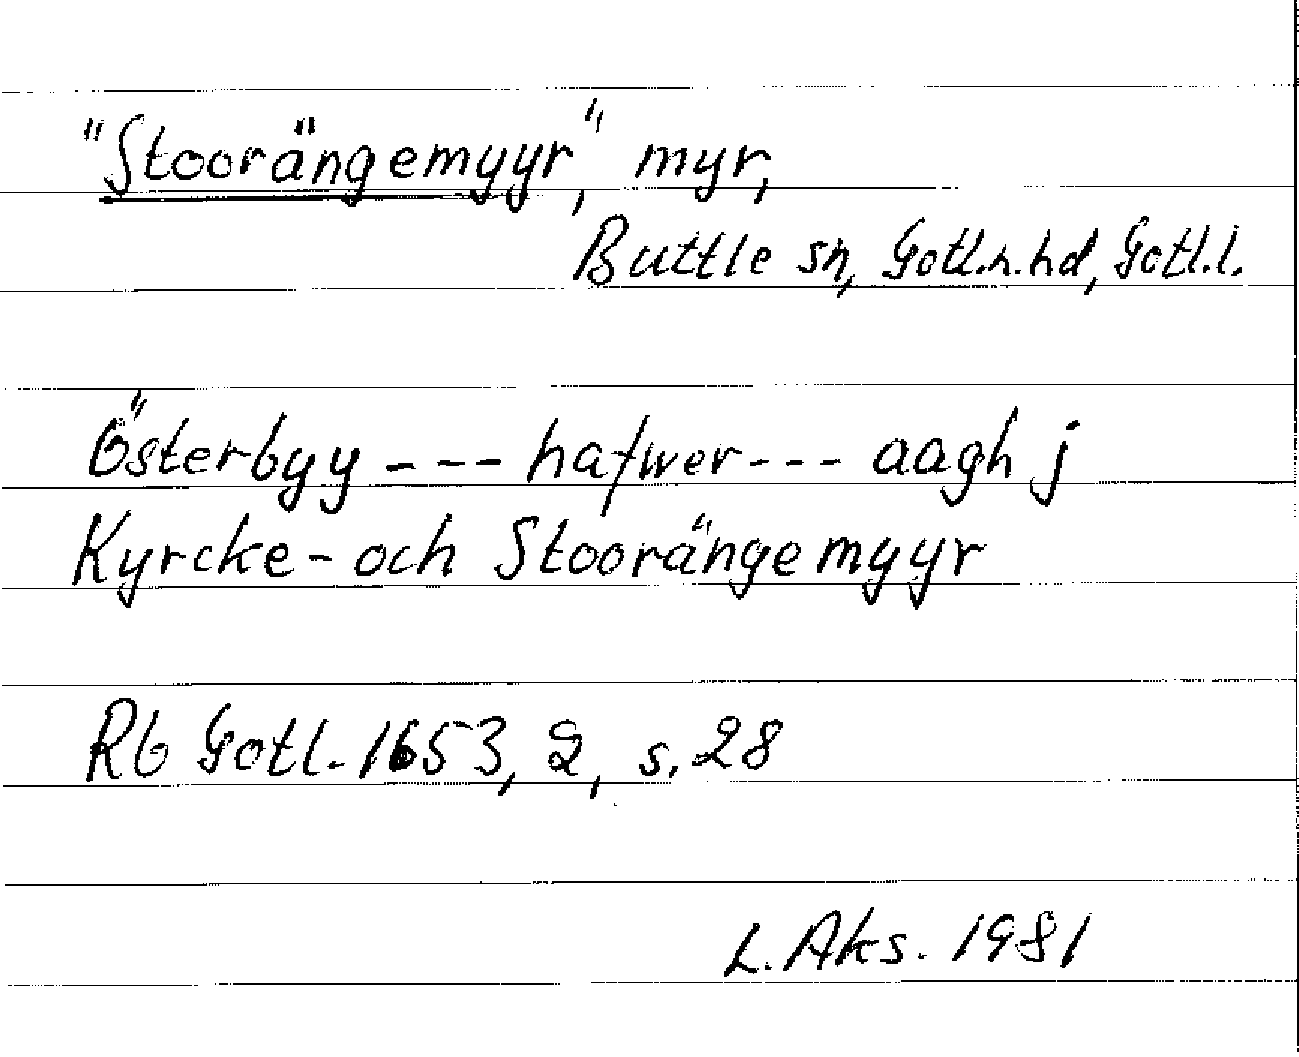 "Stoorängemyyr", myr,
Buttle sn, Gotl.n.hd, Gotl.l.
Österbyy --- hafwer --- aagh j
Kyrcke- och Stoorängemyyr
Rb Gotl. 1653, 2, s. 28
L. Aks. 1981